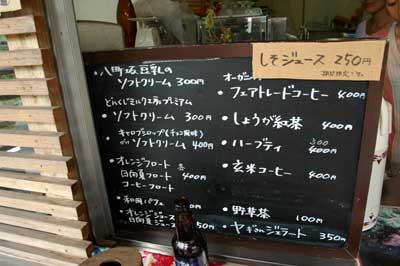 しそジュース 250円
・八町坂豆乳の
ソフトクリーム 300円
どんぐりミルク工房プレミアム
・ソフトクリーム 300円
・キャロブシロップ(チョコ風味)
ソフトクリーム 400円
・オレンジフロート
日向夏フロート 400円
コーヒーフロート
・和岡パフェ
・オレンジジュース
日向夏ジュース 50円
オーガニ
・フェアトレードコーヒー 400円
・しょうが紅茶 400円
・ハーブティ 300
400円
・玄米コーヒー 400円
・野草茶 100円
・ヤギのジェラート 350円